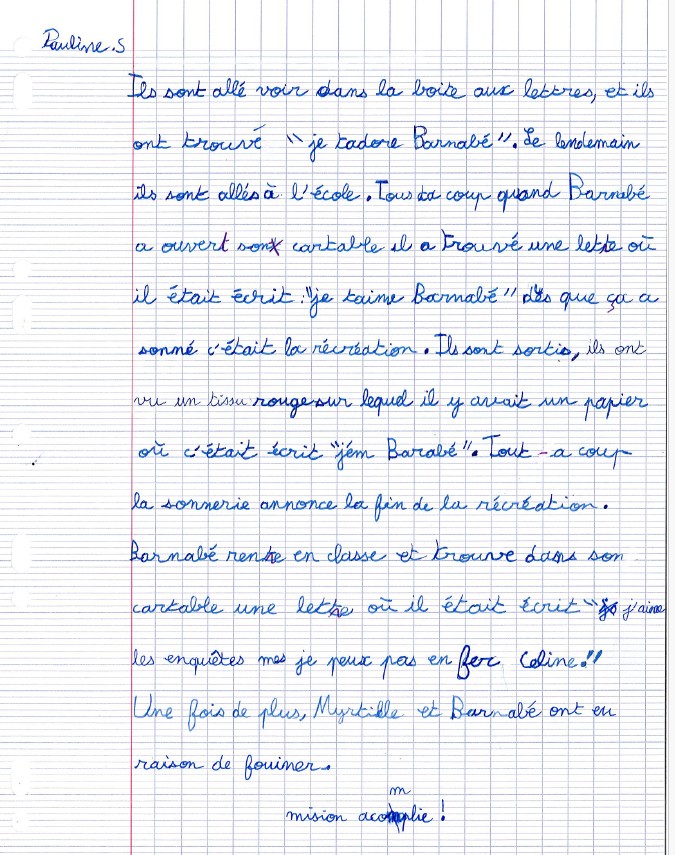 Pauline.S
Ils sont allé voir dans la boite aux lettres, et ils
ont trouvé "je tadore Barnabé". Le lendemain
ils sont allés à l'école. Tous ta coup quand Barnabé
a ouvert son cartable il a trouvé une lettre où
il était écrit : "je taime Barnabé" dès que ça a
sonné c'était la récréation. Ils sont sortis, ils ont
vu un tissu rouge sur lequel il y avait un papier
où c'était écrit "jém Barabé". Tout-a coup
la sonnerie annonce la fin de la récréation.
Barnabé rentre en classe et trouve dans son
cartable une lettre où il était écrit " j'aime
les enquêtes mes je peux pas en fer Celine!"
Une fois de plus, Myrtille et Barnabé ont eu
raison de fouiner.
mision acomplie !